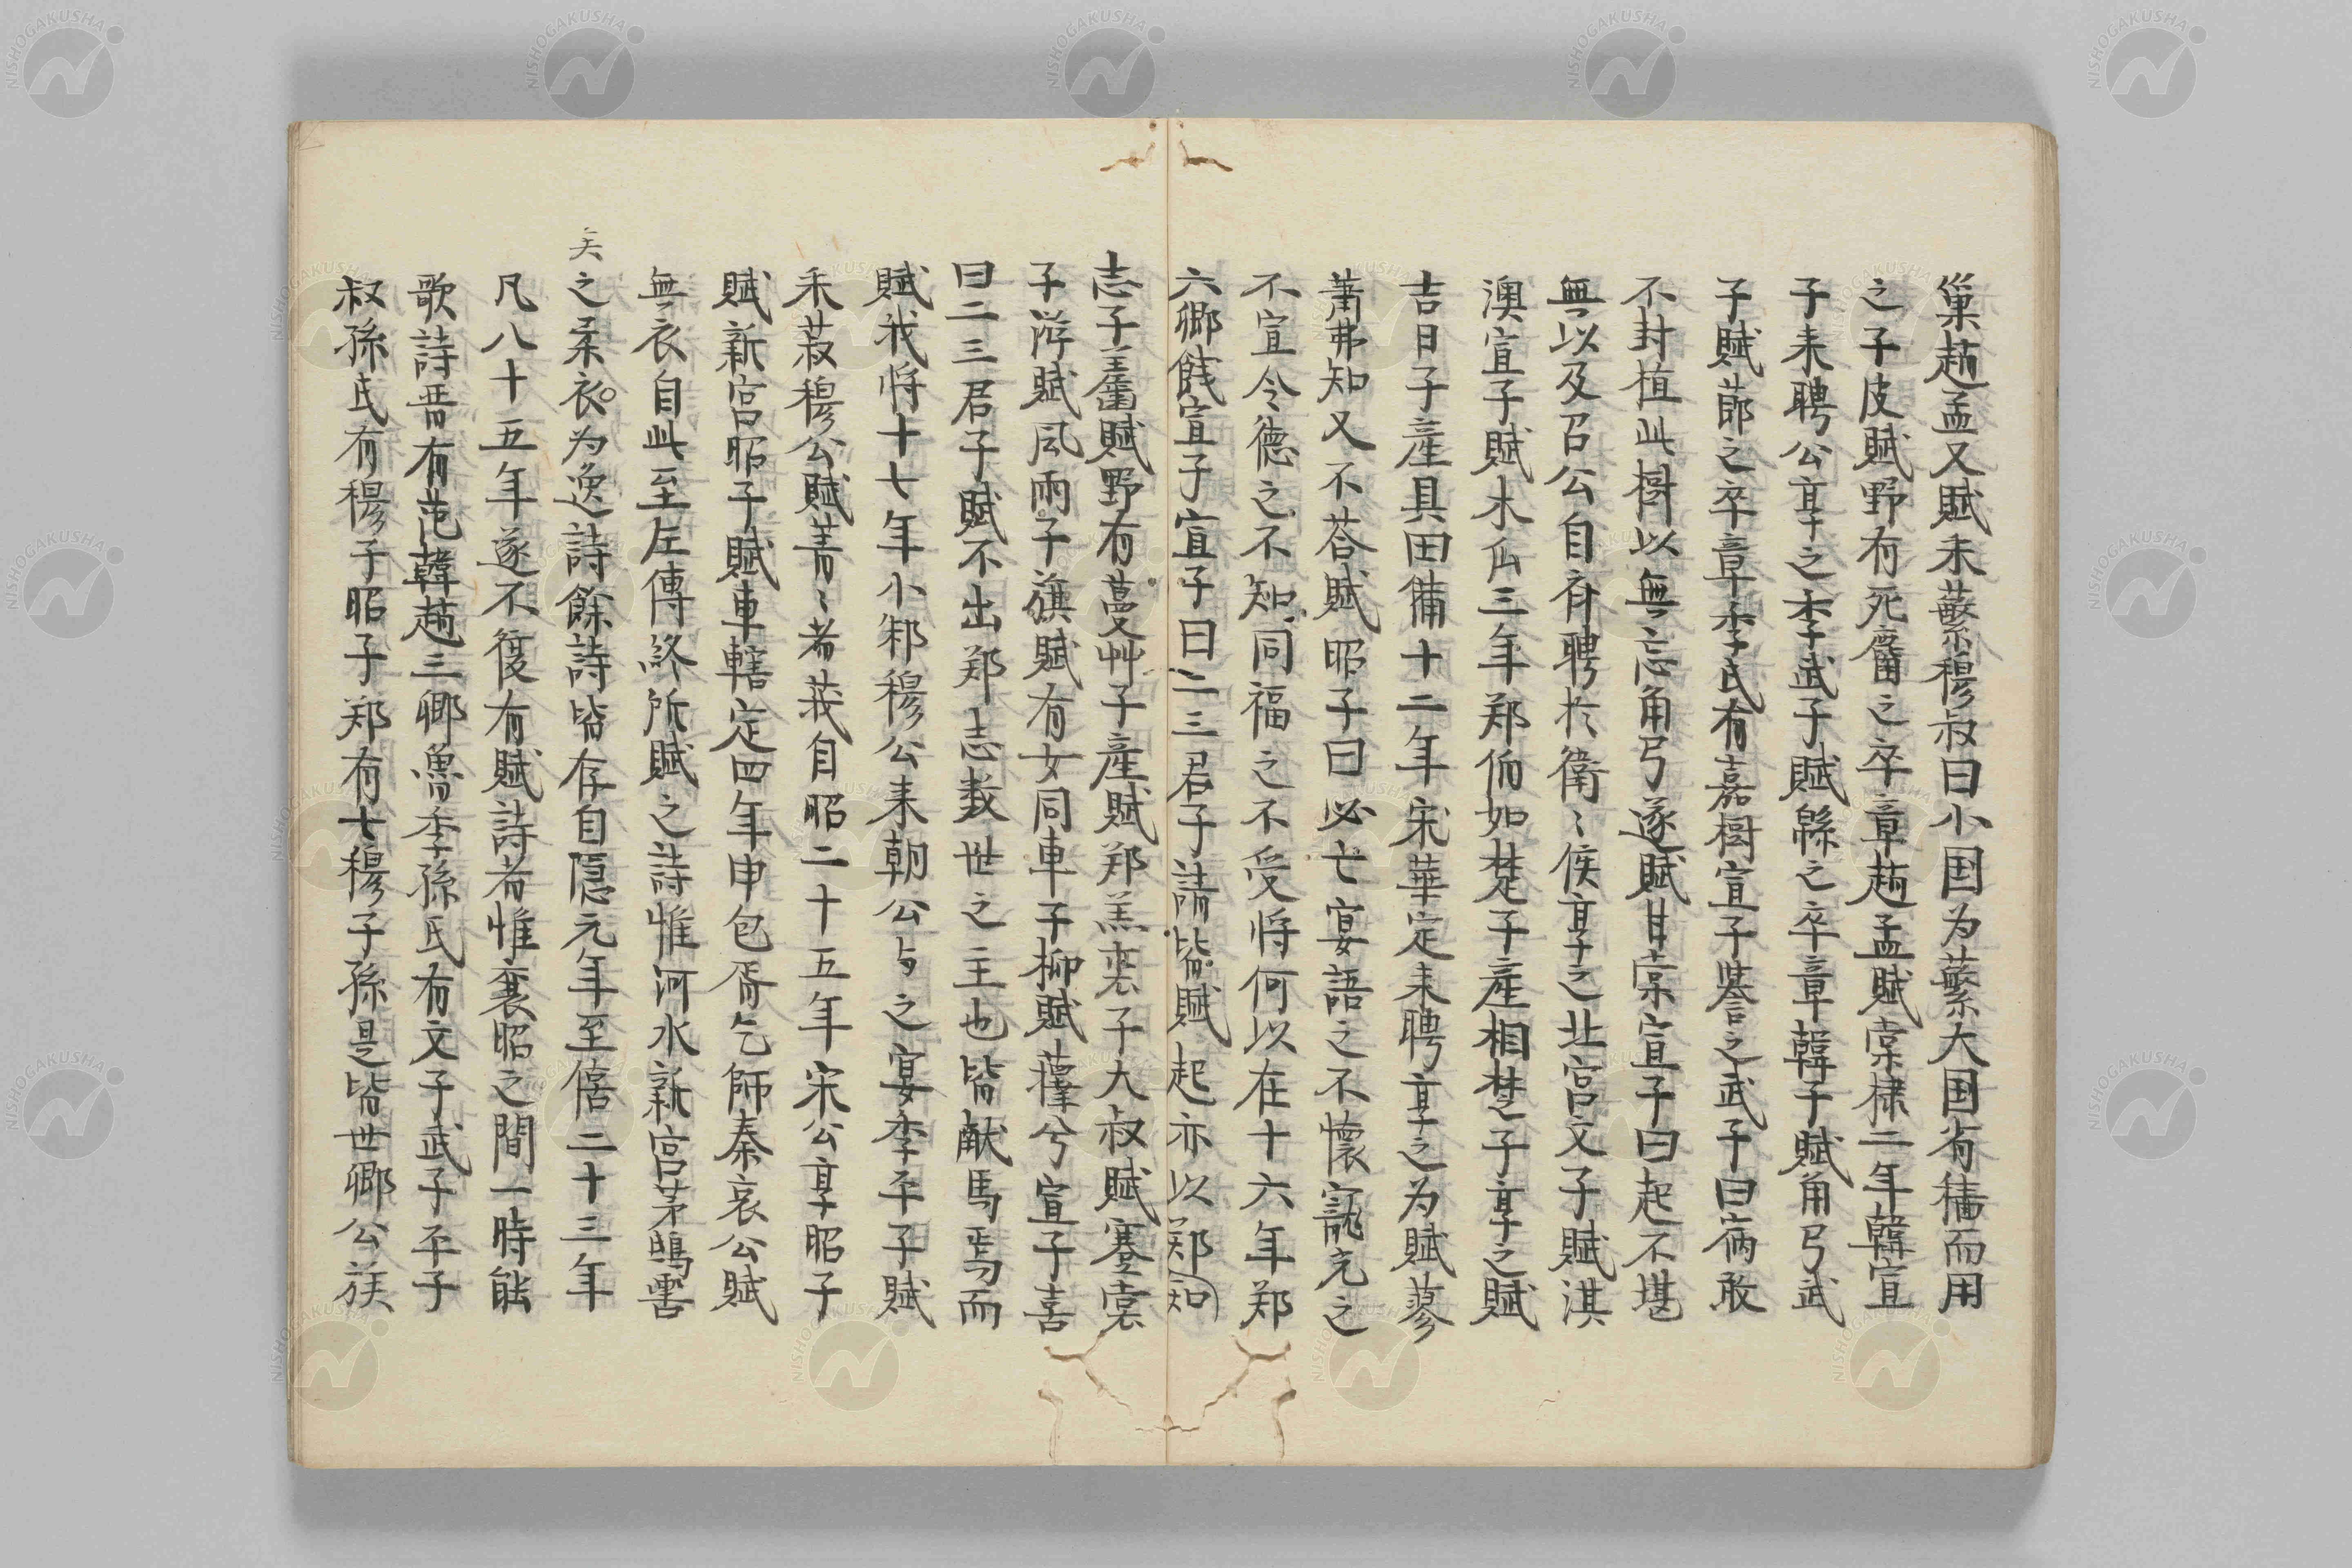 巢趙孟又賦采蘩穆叔曰小国为蘩大国省穡而用
之子皮賦野有死麕之卒章趙孟賦棠棣二年韓宣
子来聘公享之季武子賦緜之卒章韓子賦角弓武
子賦節之卒章季氏有嘉樹宣子誉之武子曰宿敢
不封植此樹以無忘角弓遂賦甘棠宣子曰起不堪
無以及召公自斉聘於衛〻侯享之北宮文子賦淇
澳宣子賦木瓜三年郑伯如楚子産相楚子享之賦
吉日子産具田備十二年宋華定来聘享之为賦蓼
萧弗知又不荅賦昭子曰必亡宴語之不懷寵光之
不宣令德之不知同福之不受将何以在十六年郑
六卿餞宣子宣子曰二三君子請皆賦起亦以郑知
志子齹賦野有蔓艸子産賦郑羔裘子大叔賦褰裳
子游賦風雨子旗賦有女同車子柳賦蘀兮宣子喜
曰二三君子賦不出郑志数世之主也皆献馬焉而
賦我将十七年小邾穆公来朝公与之宴季平子賦
采菽穆公賦菁〻者莪自昭二十五年宋公享昭子
賦新宮昭子賦車轄定四年申包胥乞師秦哀公賦
無衣自此至左傳終所賦之詩惟河水新宮茅鴟䨓
之柔衣为逸詩餘詩皆存自隱元年至僖二十三年
矣
凡八十五年遂不復有賦詩者惟襄昭之間一時能
歌詩晋有范韓趙三卿魯季孫氏有文子武子平子
叔孫氏有穆子昭子郑有七穆子孫是皆世卿公族